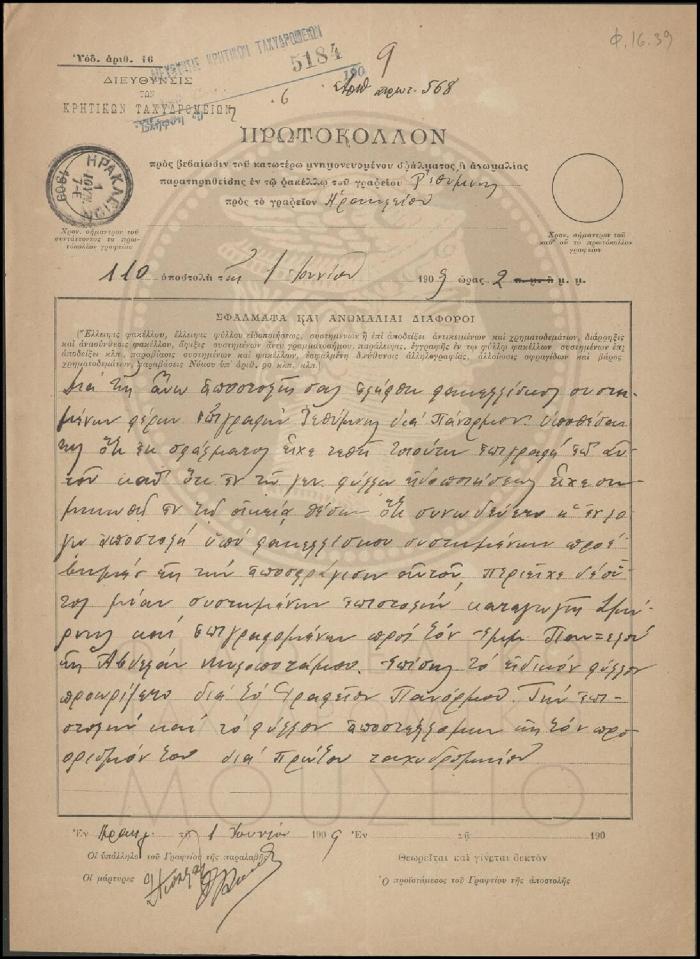 Φ.16.39
Ὑπόδ. ἀριθ. 16
ΔΙΕΥΘΥΝΣΙΣ ΚΡΗΤΙΚΩΝ ΤΑΧΥΔΡΟΜΕΙΩΝ
5184
190
9
6
ΔΙΕΥΘΥΝΣΙΣ
ΤΩΝ
ΚΡΗΤΙΚΩΝ ΤΑΧΥΔΡΟΜΕΙΩΝ
πρωτ. 568
ΠΡΩΤΟΚΟΛΛΟΝ
πρὸς βεβαίωσιν τοῦ κατωτέρω μνημονευομένου σφάλματος ἢ ἀνωμαλίας
παρατηρηθείσης ἐν τῷ φακέλλῳ τοῦ γραφείου Ρεθύμνης
πρὸς τὸ γραφεῖον Ἡρακλείου
ΗΡΑΚΛΕΙΟΝ
1
ΙΟΥΝ
7-Ε
1909
Χρον. σήμαντρον τοῦ
συντάττοντος τὸ πρω-
τόκολλον γραφείου
Χρον. σήμαντρον τοῦ
καθ' οὗ τὸ πρωτόκολλον
γραφείου
110 ἀποστολὴ τῆς 1 Ἰουνίου 1909 ὥρας 2 π. μ. ἢ μ. μ.
ΣΦΑΛΜΑΤΑ ΚΑΙ ΑΝΩΜΑΛΙΑΙ ΔΙΑΦΟΡΟΙ
(Ἔλλειψις φακέλλου, ἔλλειψις φύλλου εἰδοποιήσεως, συστημένων ἢ ἐπὶ ἀποδείξει ἀντικειμένων καὶ χρηματοδεμάτων, διάρρηξις
καὶ ἀνασύνθεσις φακέλλου, ἄφιξις συστημένων ἄνευ γραμματοσήμου, παράλειψις ἐγγραφῆς ἐν τῷ φύλλῳ φακέλλων συστημένων ἐπὶ
ἀποδείξει κλπ., παραβίασις συστημένων καὶ φακέλλων, ἐσφαλμένη διεύθυνσις ἀλληλογραφίας, ἀλλοίωσις σφραγίδων καὶ βάρος
χρηματοδεμάτων, παραβίασις Νόμου ὑπ' ἀριθ. 90 κπκ. κλπ.)
Διὰ τῆς ἄνω ἀποστολῆς σας ἐλήφθη φακελλίσκος συστη-
μένων φέρων ἐπιγραφὴν Ρεθύμνης διὰ Πάνορμον. Ὑποθέσαν-
τες ὅτι ἐκ σφάλματος εἶχε τεθῆ τοιαύτη ἐπιγραφὴ ἐπ' αὐ-
τοῦ καθ' ὅτι ἐν τῷ γεν. φύλλῳ εἰδοποιήσεως εἶχε ση-
μειωθῆ ἐν τῇ οἰκείᾳ θέσει ὅτι συνωδεύετο ἡ ἐν λό-
γῳ ἀποστολὴ ὑπὸ φακελλίσκου συστημένων προέ-
βημεν εἰς τὴν ἀποσφράγισιν αὐτοῦ, περιεῖχε δὲ οὗ-
τος μίαν συστημένην ἐπιστολὴν καταγωγῆς Σμύρ-
νης καὶ ἐπιγραφομένην πρὸς τὸν
εἰς Μυλοποτάμου. Ἐπίσης τὸ εἰδικὸν φύλλον
προωρίζετο διὰ τὸ Γραφεῖον Πανόρμου. Τὴν ἐπι-
στολὴν καὶ τὸ φύλλον ἀποστέλλομεν εἰς τὸν προ-
ορισμόν του διὰ πρώτου ταχυδρομείου
Ἐν Ἡρακλ. τῇ 1 Ἰουνίου 1909 Ἐν τῇ 190
Οἱ ὑπάλληλοι τοῦ Γραφείου τῆς παραλαβῆς
Θεωρεῖται καὶ γίνεται δεκτὸν
Οἱ μάρτυρες
Ὁ προϊστάμενος τοῦ Γραφείου τῆς ἀποστολῆς
ΜΟΥΣΕΙΟ